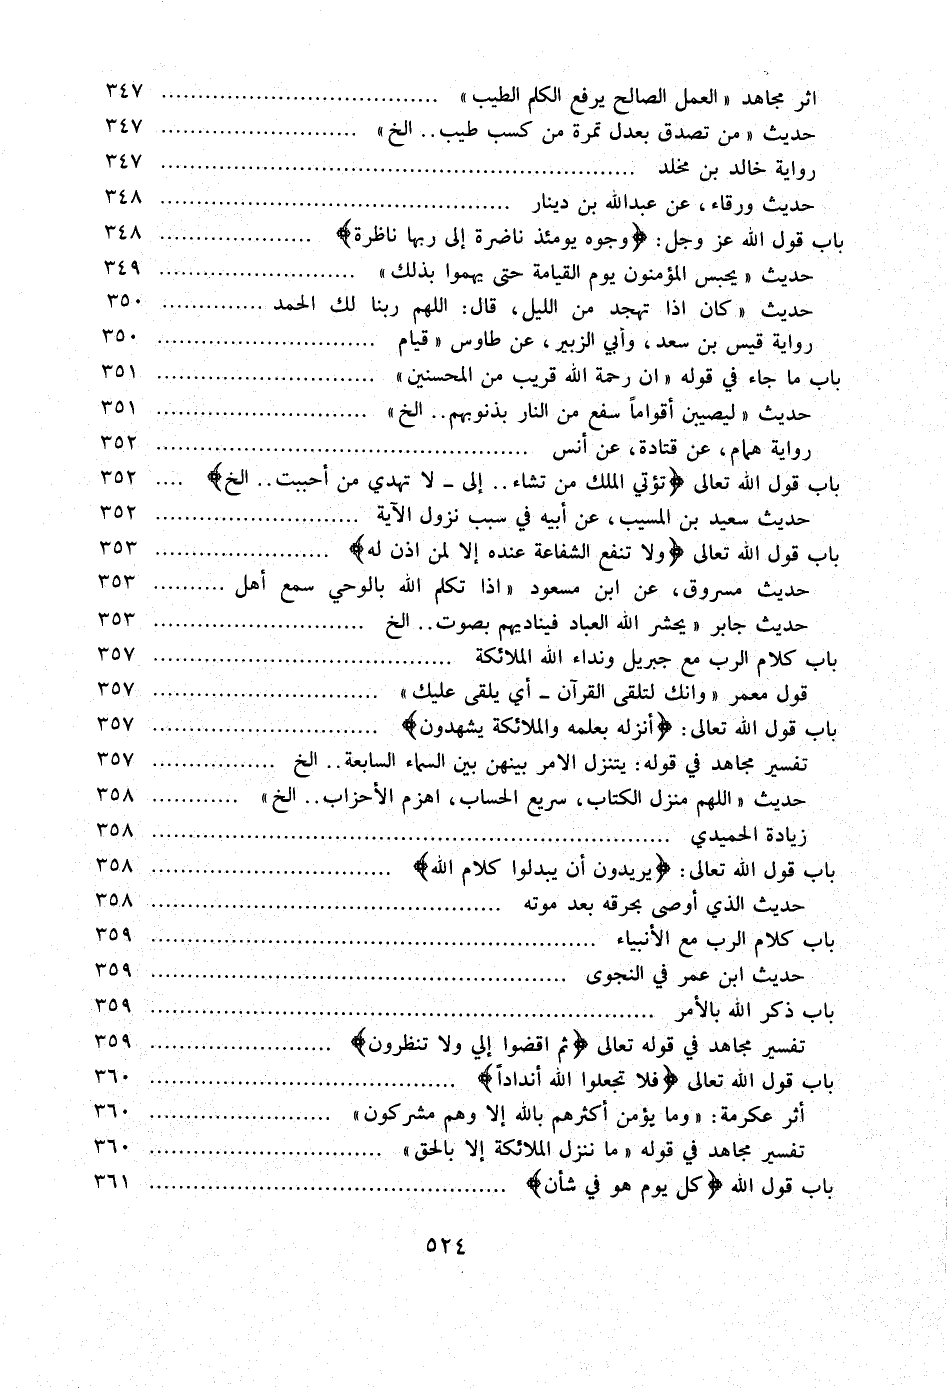 اثر مجاهد « العمل الصالح يرفع الكلم الطيب » ........ ٣٤٧
حديث « من تصدق بعدل تمرة من كسب طيب .. الخ » ........ ٣٤٧
رواية خالد بن مخلد ........ ٣٤٧
حديث ورقاء ، عن عبدالله بن دينار ........ ٣٤٨
باب قول الله عز وجل : ﴿وجوه يومئذ ناضرة إلى ربها ناظرة﴾ ........ ٣٤٨
حديث « يحبس المؤمنون يوم القيامة حتى يهموا بذلك » ........ ٣٤٩
حديث « كان اذا تهجد من الليل ، قال : اللهم ربنا لك الحمد ........ ٣٥٠
رواية قيس بن سعد ، وأبي الزبير ، عن طاوس « قيام ........ ٣٥٠
باب ما جاء في قوله « ان رحمة الله قريب من المحسنين » ........ ٣٥١
حديث « ليصيبن أقواماً سفع من النار بذنوبهم .. الخ » ........ ٣٥١
رواية همام ، عن قتادة ، عن أنس ........ ٣٥٢
باب قول الله تعالى ﴿تؤتي الملك من تشاء .. إلى ـ لا تهدي من أحببت .. الخ﴾ .... ٣٥٢
حديث سعيد بن المسيب ، عن أبيه في سبب نزول الآية ........ ٣٥٢
باب قول الله تعالى ﴿ولا تنفع الشفاعة عنده إلا لمن اذن له﴾ ........ ٣٥٣
حديث مسروق ، عن ابن مسعود « اذا تكلم الله بالوحي سمع أهل ........ ٣٥٣
حديث جابر « يحشر الله العباد فيناديهم بصوت .. الخ ........ ٣٥٣
باب كلام الرب مع جبريل ونداء الله الملائكة ........ ٣٥٧
قول معمر « وانك لتلقى القرآن ـ أي يلقى عليك » ........ ٣٥٧
باب قول الله تعالى : ﴿أنزله بعلمه والملائكة يشهدون﴾ ........ ٣٥٧
تفسير مجاهد في قوله : يتنزل الامر بينهن بين السماء السابعة .. الخ ........ ٣٥٧
حديث « اللهم منزل الكتاب ، سريع الحساب ، اهزم الأحزاب .. الخ » ........ ٣٥٨
زيادة الحميدي ........ ٣٥٨
باب قول الله تعالى : ﴿يريدون أن يبدلوا كلام الله﴾ ........ ٣٥٨
حديث الذي أوصى بحرقه بعد موته ........ ٣٥٨
باب كلام الرب مع الأنبياء ........ ٣٥٩
حديث ابن عمر في النجوى ........ ٣٥٩
باب ذكر الله بالأمر ........ ٣٥٩
تفسير مجاهد في قوله تعالى ﴿ثم اقضوا إلي ولا تنظرون﴾ ........ ٣٥٩
باب قول الله تعالى ﴿فلا تجعلوا الله أنداداً﴾ ........ ٣٦٠
أثر عكرمة : « وما يؤمن أكثرهم بالله إلا وهم مشركون » ........ ٣٦٠
تفسير مجاهد في قوله « ما ننزل الملائكة إلا بالحق » ........ ٣٦٠
باب قول الله ﴿كل يوم هو في شأن﴾ ........ ٣٦١
٥٢٤